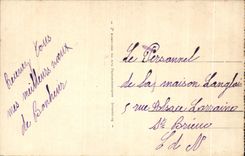 Recevez tous
mes meilleurs vœux
de Bonheur
Le Personnel
de la maison Langlois
5 rue Alsace Lorraine
St Brieuc
C d N